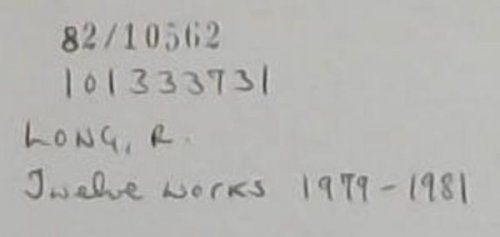 82/10562
101333731
LONG, R.
Twelve works 1979-1981